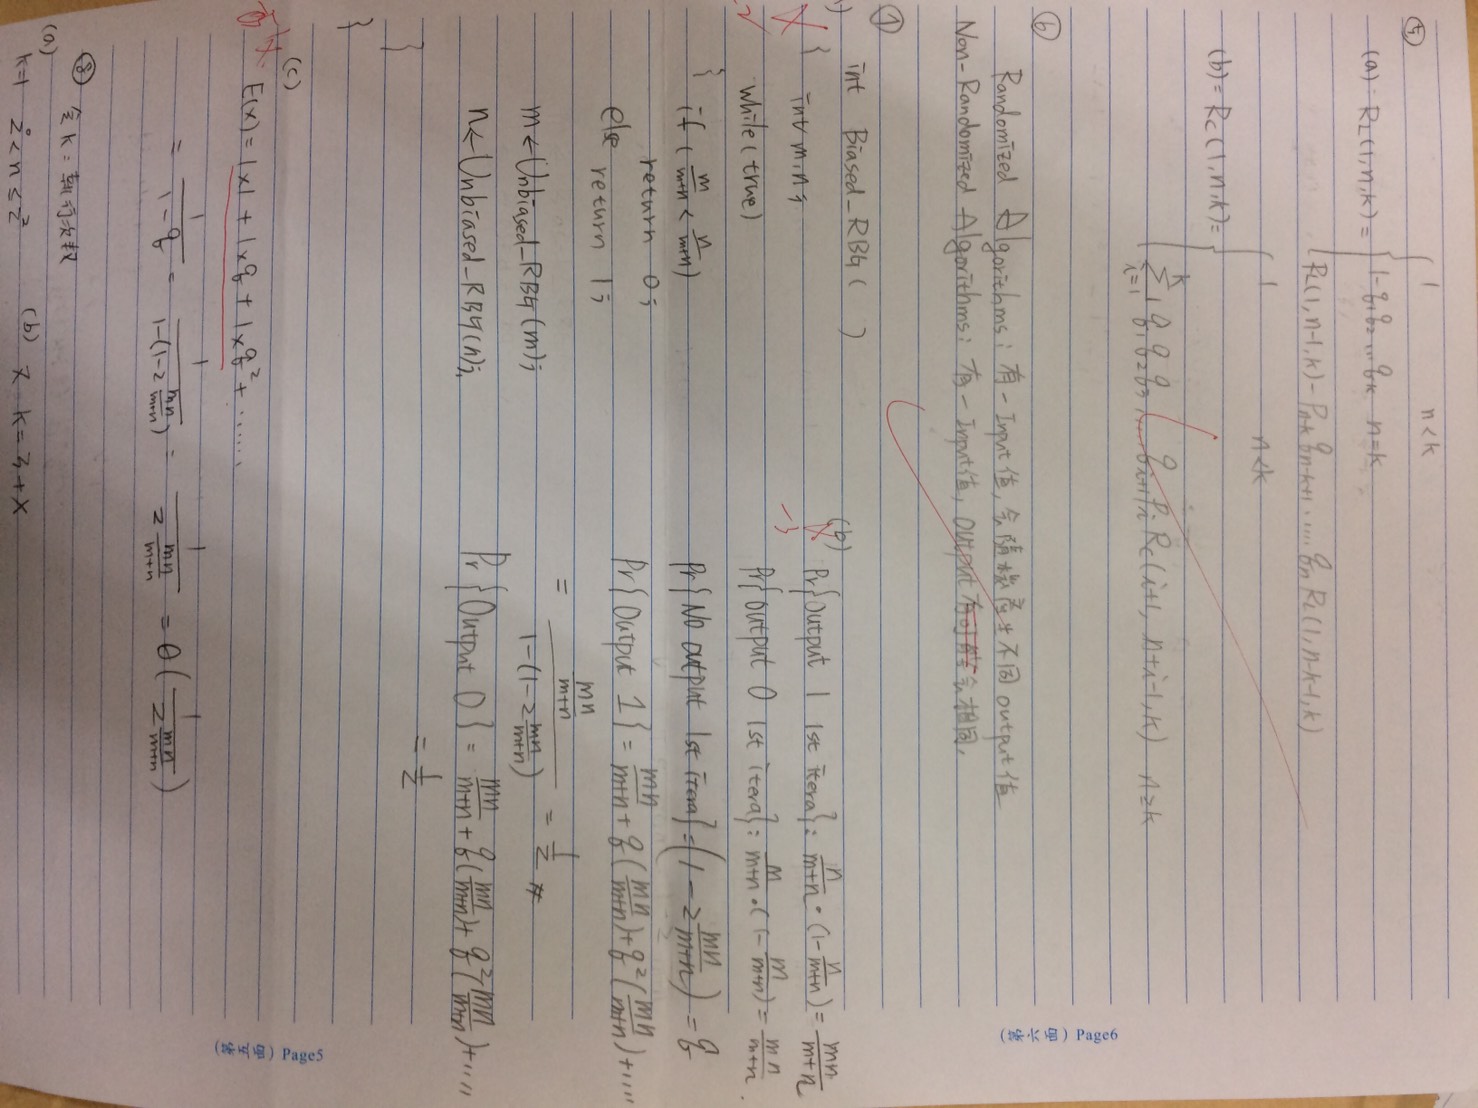 ⑤
1 n<k
(a) R_L(1,n,k)= 1-q₁q₂...q_k n=k
R_L(1,n-1,k)-P_{n-k} q_{n-k+1}.....q_n R_L(1,n-k-1,k)
1 n<k
(b)= R_C(1,n,k)=
∑_{i=1}^{k} q₁q₂q₃.....q_{i+1}P_i R_C(i+1, n+i-1,k) n≥k
⑥
Randomized Algorithms: 有一Input值,会隨機產生不同output值
Non-Randomized Algorithms: 有一Input值, Output 有可能会相同.
⑦
int Biased_RBG( )
{
int m,n;
while(true)
{
if ( m/(m+n) < n/(m+n) )
return 0;
else
return 1;
m←Unbiased_RBG(m);
n←Unbiased_RBG(n);
}
}
(b)
-3
Pr{Output 1 1st itera}: n/(m+n)·(1-n/(m+n))= mn/(m+n)
Pr{output 0 1st itera}: m/(m+n)·(1-m/(m+n))= mn/(m+n).
Pr{No output 1st itera}=(1-2 mn/(m+n))=q
Pr{Output 1}= mn/(m+n)+q(mn/(m+n))+q²(mn/(m+n))+....
= (mn/(m+n))/(1-(1-2 mn/(m+n))) = 1/2 #
Pr{Output 0}= mn/(m+n)+q(mn/(m+n))+q²(mn/(m+n))+....
= 1/2
(c)
E(x)=1×1+1×q+1×q²+......
= 1/(1-q) = 1/(1-(1-2 mn/(m+n))) = 1/(2 mn/(m+n)) = θ(1/(2 mn/(m+n)))
⑧ 令k:執行次數
(a)
k=1 2⁰<n≤2²
(b) 又 k=3+x
Page6
Page5